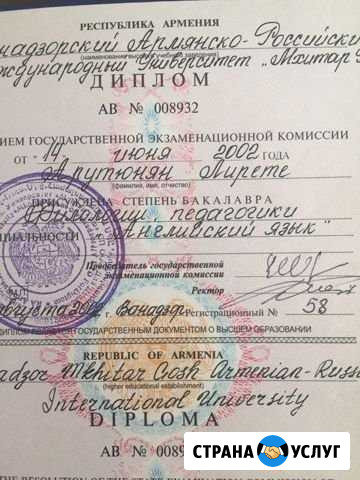 РЕСПУБЛИКА АРМЕНИЯ
надзорский Армянско-Российский
(наименование высшего учебного заведения)
международный Университет „Мхитар
ДИПЛОМ
АВ № 008932
ИЕМ ГОСУДАРСТВЕННОЙ ЭКЗАМЕНАЦИОННОЙ КОМИССИИ
ОТ „14 июня 2002 ГОДА
Арутюнян Лирете
(фамилия, имя, отчество)
ПРИСУЖДЕНА СТЕПЕНЬ БАКАЛАВРА
филологии педагогики
ЦИАЛЬНОСТИ „Английский язык"
Председатель государственной
экзаменационной комиссии
Ректор
августа 200 г. Ванадзор Регистрационный № 58
ДИПЛОМ ЯВЛЯЕТСЯ ГОСУДАРСТВЕННЫМ ДОКУМЕНТОМ О ВЫСШЕМ ОБРАЗОВАНИИ
REPUBLIC OF ARMENIA
adzor Mkhitar Gosh Armenian-Russ
(higher educational establishment)
International University
DIPLOMA
АВ № 008
СТРАНА УСЛУГ